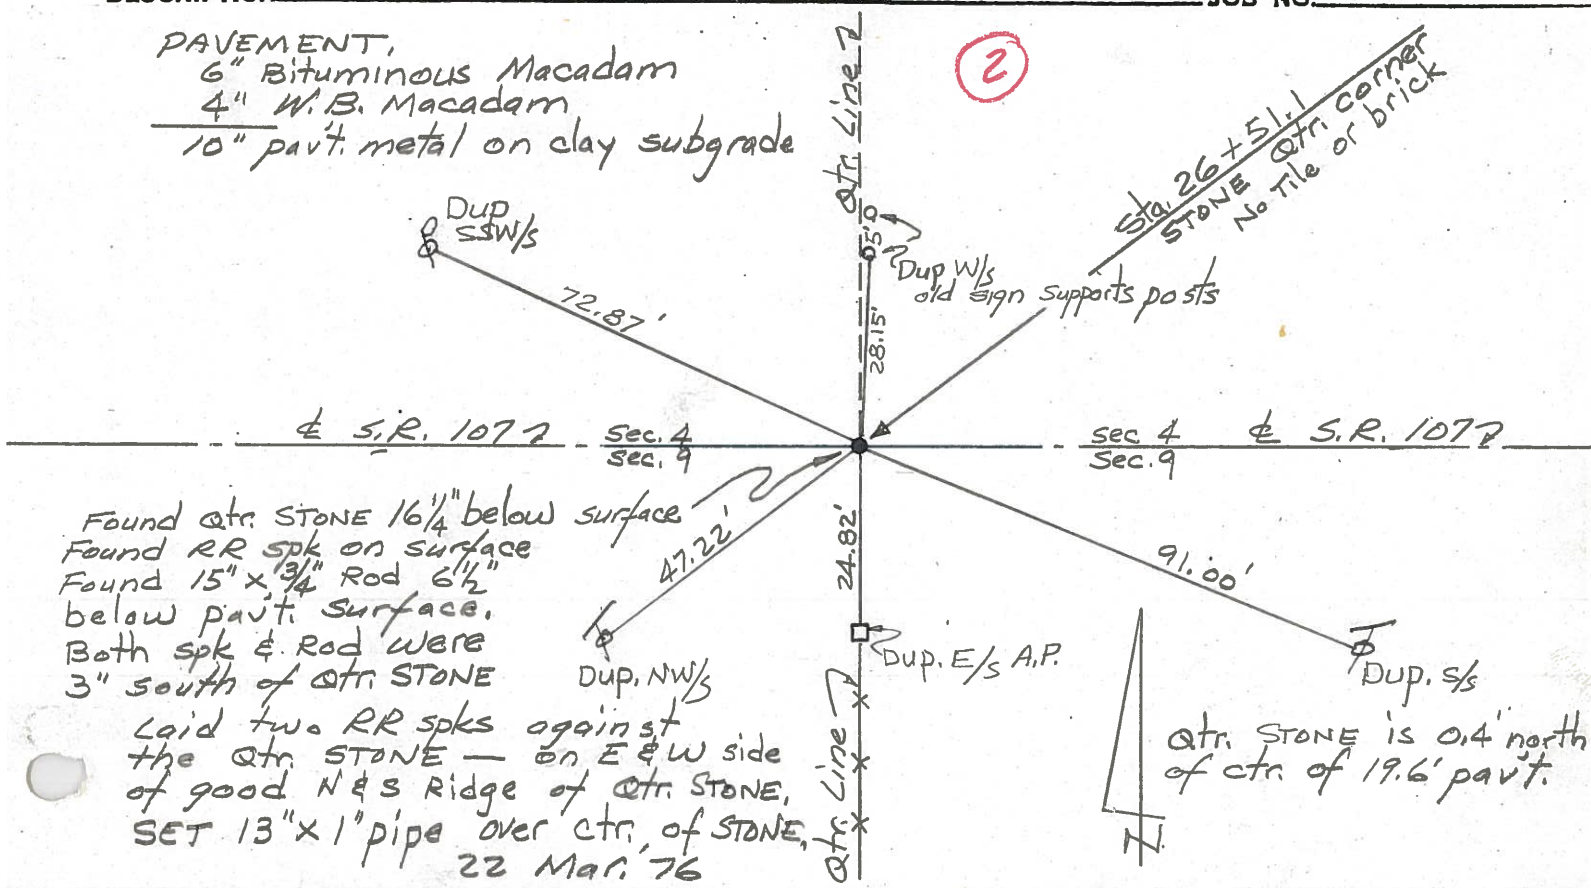 JOB NO.
②
PAVEMENT.
6" Bituminous Macadam
4" W.B. Macadam
10" pav't. metal on clay subgrade
Qtr. Line
Sta. 26+51.1
STONE Qtr. corner
No Tile or brick
Dup
SSW/s
5'
Dup W/s
old sign supports posts
72.87'
28.15'
℄ S.R. 107
Sec. 4
Sec. 9
sec 4
Sec. 9
℄ S.R. 107
Found Qtr. STONE 16 1/4" below surface
Found RR spk on surface
Found 15" x 3/4" Rod 6 1/2"
below pav't. surface.
Both spk & Rod were
3" south of Qtr. STONE
Laid two RR spks against
the Qtr. STONE — on E & W side
of good N & S Ridge of Qtr. STONE,
SET 13" X 1" pipe over ctr. of STONE,
22 Mar. '76
47.22'
24.82'
91.00'
Dup. NW/s
Dup. E/s A.P.
Dup. S/s
Qtr. Line
N
Qtr. STONE is 0.4' north
of ctr. of 19.6' pav't.